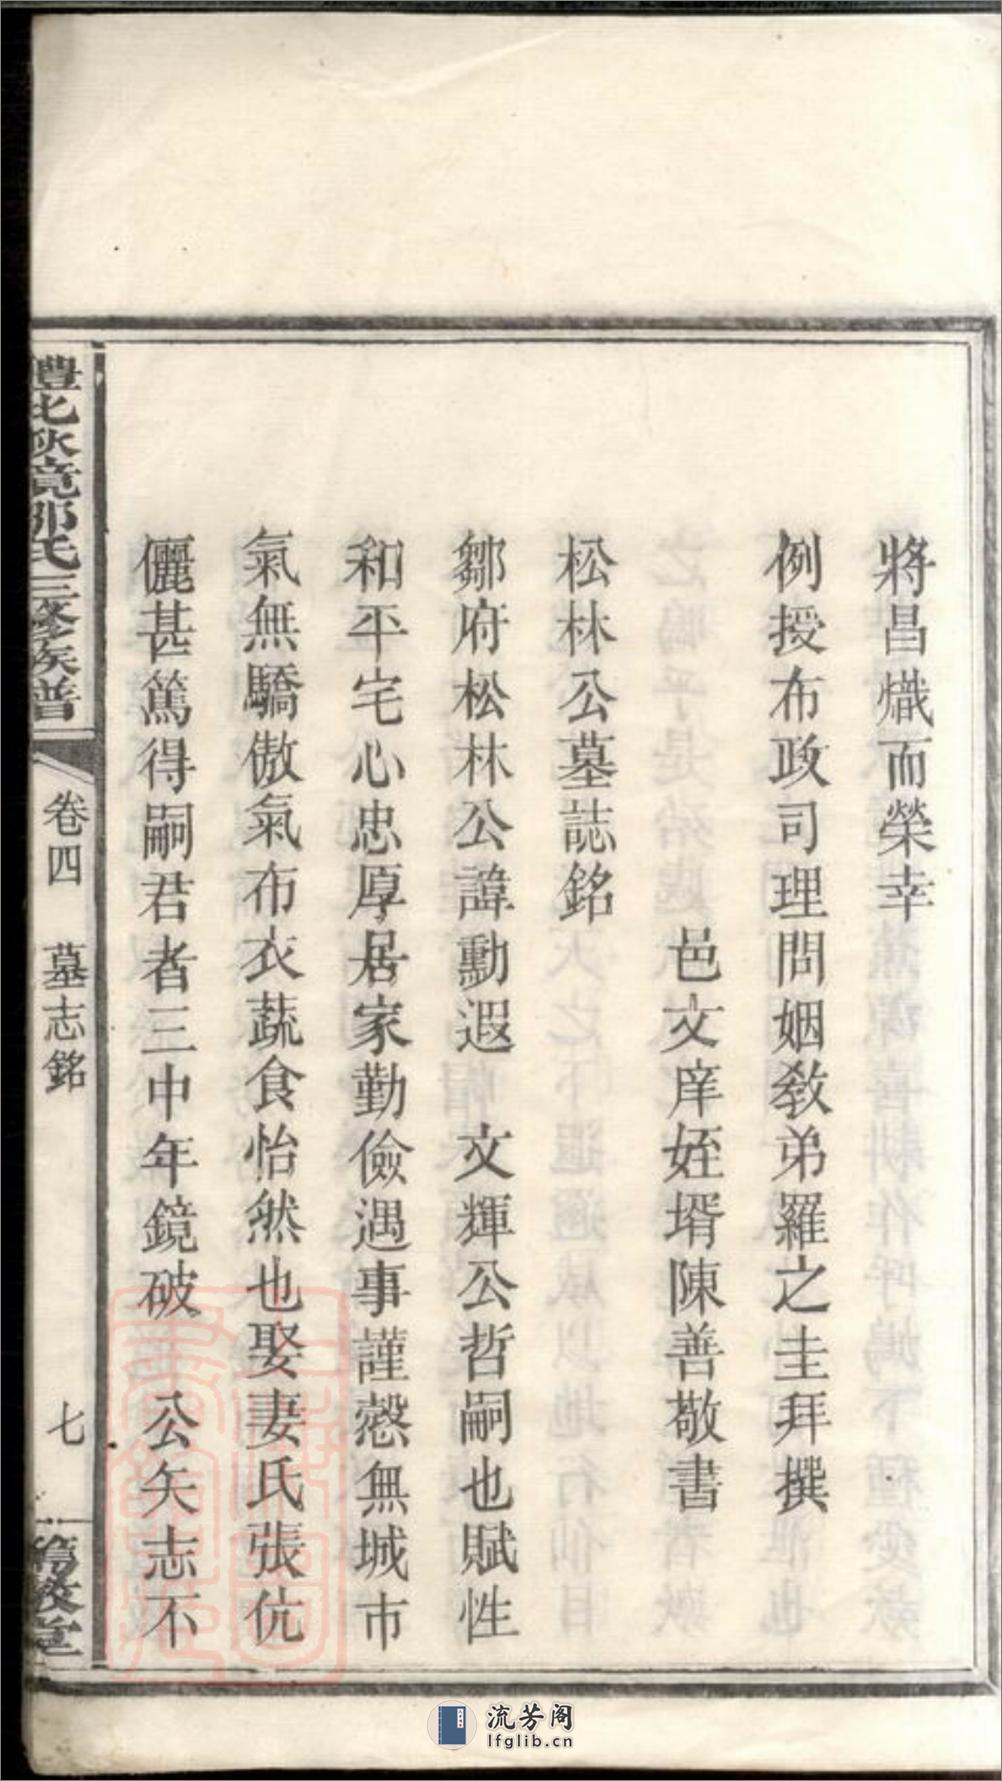 將昌熾而榮幸
例授布政司理問姻教弟羅之圭拜撰
邑文庠姪壻陳善敬書
松林公墓誌銘
鄒府松林公諱勳遐　文輝公哲嗣也賦性
和平宅心忠厚居家勤儉遇事謹慤無城市
氣無驕傲氣布衣蔬食怡然也娶妻氏張伉
儷甚篤得嗣君者三中年鏡破　公矢志不
氏三修族譜
卷四　墓志銘
七
堂
流芳阁
lfglib.cn